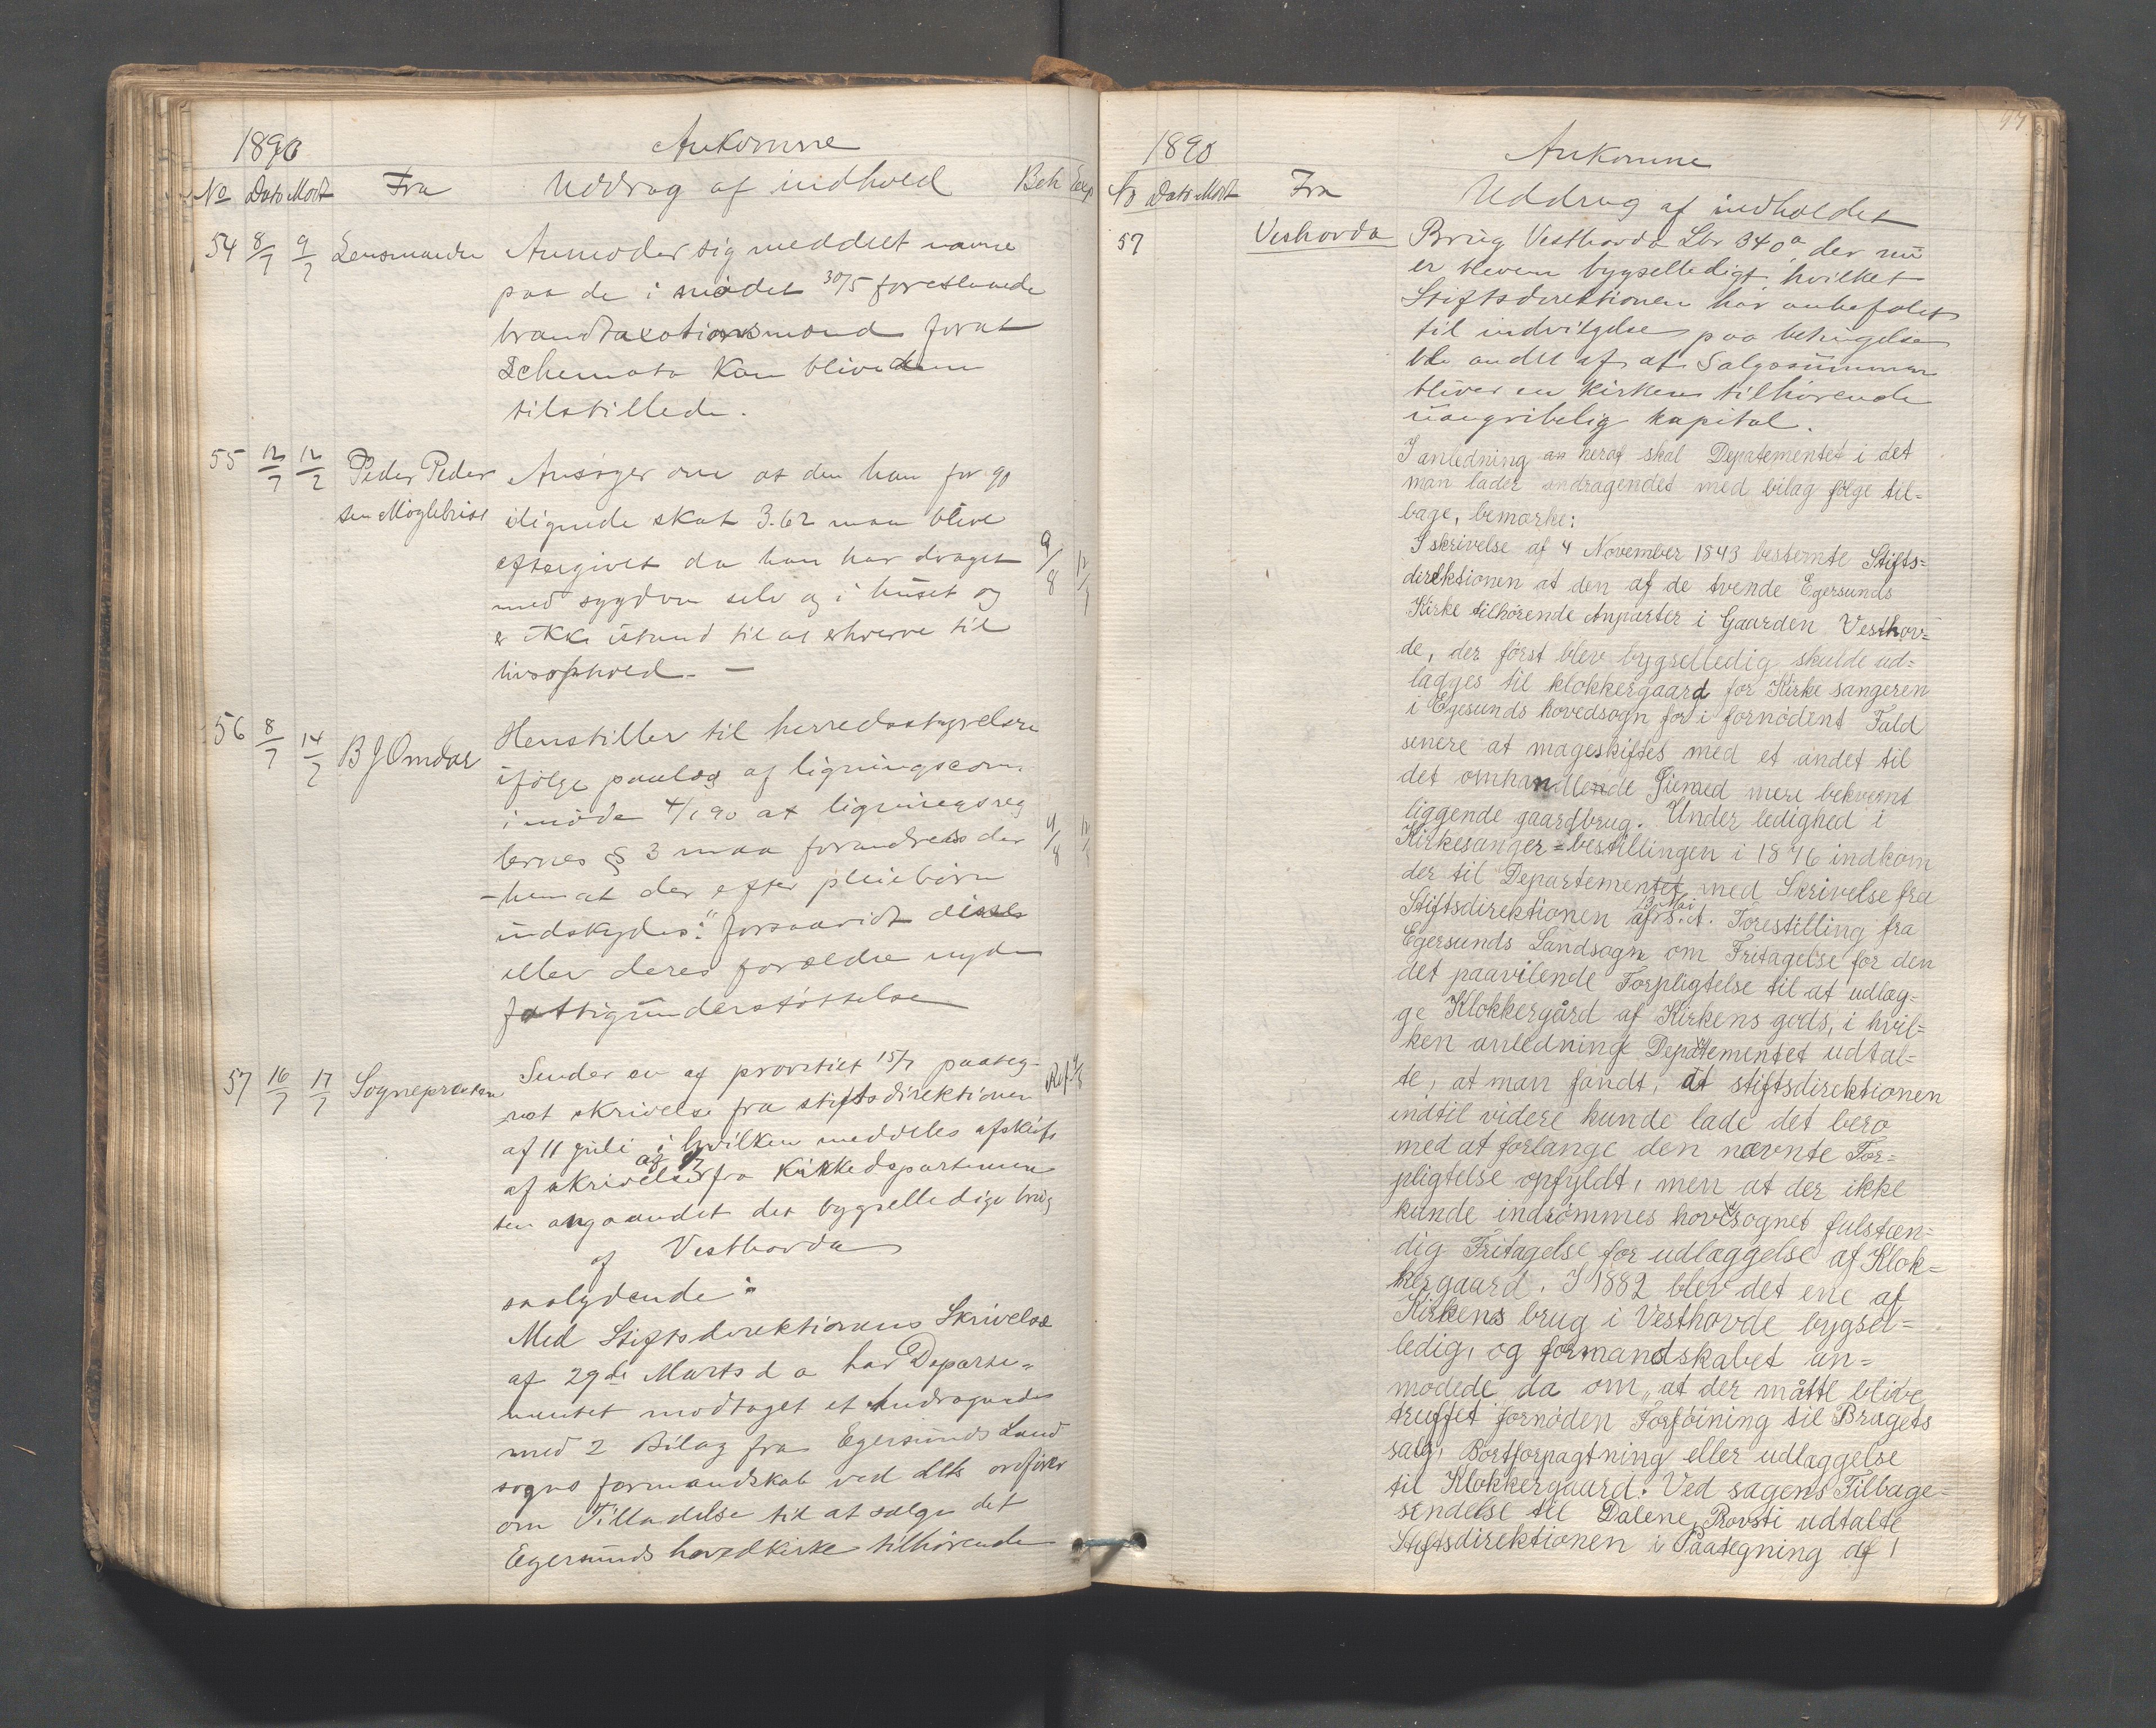 1890 Ankomne
No Dato Modt Fra Uddrag af indhold Beh Exp
54 8/7 9/7 Lensmanden Anmoder sig meddelt navne
paa de i mødet 30/5 foreslaaede
brandtaxationsmænd forat
Schemata kan blive dem
tilstillede.
55 12/7 12/7 Peder Peder Ansøger om at den ham for 90
sen Møglebust ilignede skat 3.62 maa blive
eftergivet da han har draget 9/8 12/8
med sygdom selv og i huset og
er ikke istand til at erhverve til
livsophold. —
56 8/7 14/7 B J Omdal Henstiller til herredsstyrelsen
ifølge paalæg af ligningscom.
i møde 4/1 90 at ligningsreg
lernes § 3 maa forandres der
- hen at der efter pleiebørn 9/8 12/8
indskydes: "forsaavidt disse
eller deres forældre nyder
fattigunderstøttelse
57 16/7 17/7 Sognepræsten Sender en af provstiet 15/7 paateg- Ref 9/8
net skrivelse fra stiftsdirektionen
af 11 juli i hvilken meddeles afskrift
af skrivelse af fra Kirkedepartemen
tet angaaendet det bygselledige brug
af Vesthovda
saalydende:
Med Stiftsdirektionens Skrivelse
af 29de Marts d a har Departe-
mentet modtaget et Andragende
med 2 Bilag fra Egersunds Land
sogns formandskab ved dets ordfører
om Tilladelse til at sælge det
Egersunds hovedkirke tilhørende
1890 Ankomne
No Dato Modt Fra Uddrag af indholdet
57 Veshovda Brug Vesthovda Lbr 340a, der nu
er bleven bygselledigt, hvilket
Stiftsdirektionen har anbefalet
til indvilgelse paa betingelse
bl. andet af at Salgssummen
bliver en kirken tilhørende
uangribelig kapital.
I anledning an heraf skal Departementet i det
man lader andragendet med bilag følge til=
bage, bemærke:
I skrivelse af 4 November 1843 bestemte Stifts=
direktionen at den af de tvende Egersunds
Kirke tilhørende Anparter i Gaarden Vesthov=
de, der først blev bygselledig skulde ud=
lægges til klokkergaard for Kirke sangeren
i Egesunds hovedsogn for i fornødent Fald
senere at mageskiftes med et andet til
det omhandlende Øiemed mere bekvemt
liggende gaardbrug. Under ledighed i
Kirkesanger=bestillingen i 1876 indkom
der til Departementet med Skrivelse fra
Stiftsdirektionen af 13 Mai s. A. Forestilling fra
Egersunds Landsogn om Fritagelse for den
det paavilende Forpligtelse til at udlæg=
ge Klokkergård af Kirkens gods, i hvil=
ken anledninge Depatementet udtal=
te, at man fandt, at stiftsdirektionen
indtil videre kunde lade det bero
med at forlange den nævnte For=
pligtelse opfyldt, men at der ikke
kunde indrømmes hovedsognet fulstæn=
dig Fritagelse for udlæggelse af Klok=
kergaard. I 1882 blev det ene af
Kirkens brug i Vesthovde bygsel=
ledig, og formandskabet an=
modede da om „at der måtte blive
truffet fornøden Forføining til Brugets
salg, Bortforpagtning eller udlæggelse
til Klokkergaard. Ved sagens Tilbage=
sendelse til Dalene Provsti udtalte
Stiftsdirektionen i Paategning af 1